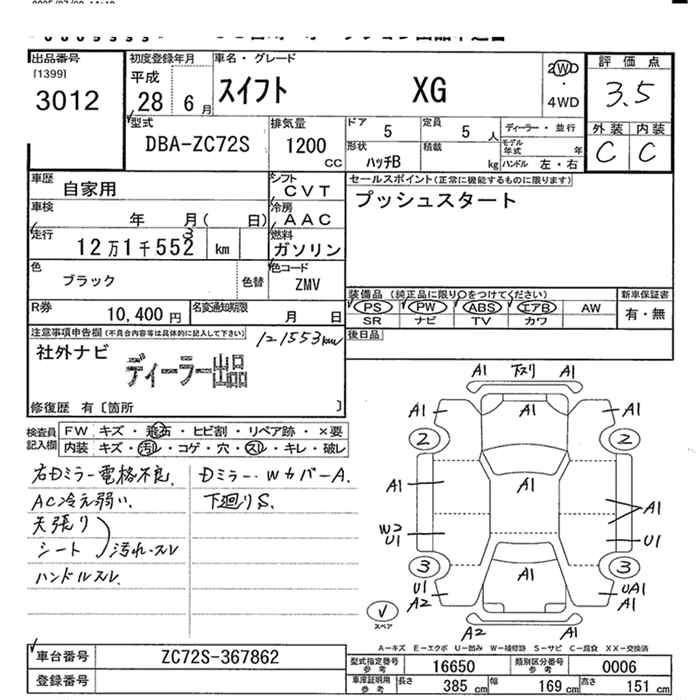 出品番号
[1399]
3012
初度登録年月
平成
28 6月
車名・グレード
スイフト XG
2WD
・
4WD
評価点
3.5
外装 内装
C C
型式
DBA-ZC72S
排気量
1200
CC
ドア 5
定員 5 人
ディーラー・並行
形状
ハッチB
積載
kg
モデル年式 年
ハンドル 左・右
車歴
自家用
シフト
CVT
車検
年 月( 日)
冷房
AAC
走行
12万1千552 km
3
燃料
ガソリン
色
ブラック
色替
色コード
ZMV
R券
10,400 円
名変通知期限
月 日
セールスポイント(正常に機能するものに限ります)
プッシュスタート
装備品(純正品に限り〇をつけてください)
新車保証書
PS PW ABS エアB AW
SR ナビ TV カワ
有・無
後日品
注意事項申告欄(不具合内容等は具体的に記入して下さい)
121553km
社外ナビ
ディーラー出品
修復歴 有〔箇所 〕
検査員
記入欄
FW キズ・飛石・ヒビ割・リペア跡・×要
内装 キズ・汚れ・コゲ・穴・スレ・キレ・破レ
右Dミラー電格不良.
AC冷え弱い.
天張り
シート 汚れ・スレ
ハンドルスレ.
Dミラー・WカバーA.
下廻りS.
A1 下スリ A1
A1 A1
2 A1 2
A1 A1 A1
W2
U1 U1
3 A1 3
U1 UA1
A2 A1
A2 A1
スペア
A-キズ E-エクボ U-凹み W-補修跡 S-サビ C-腐食 XX-交換済
車台番号
ZC72S-367862
登録番号
型式指定番号
参考
16650
類別区分番号
参考
0006
車庫証明用
参考
長さ 385 cm
幅 169 cm
高さ 151 cm